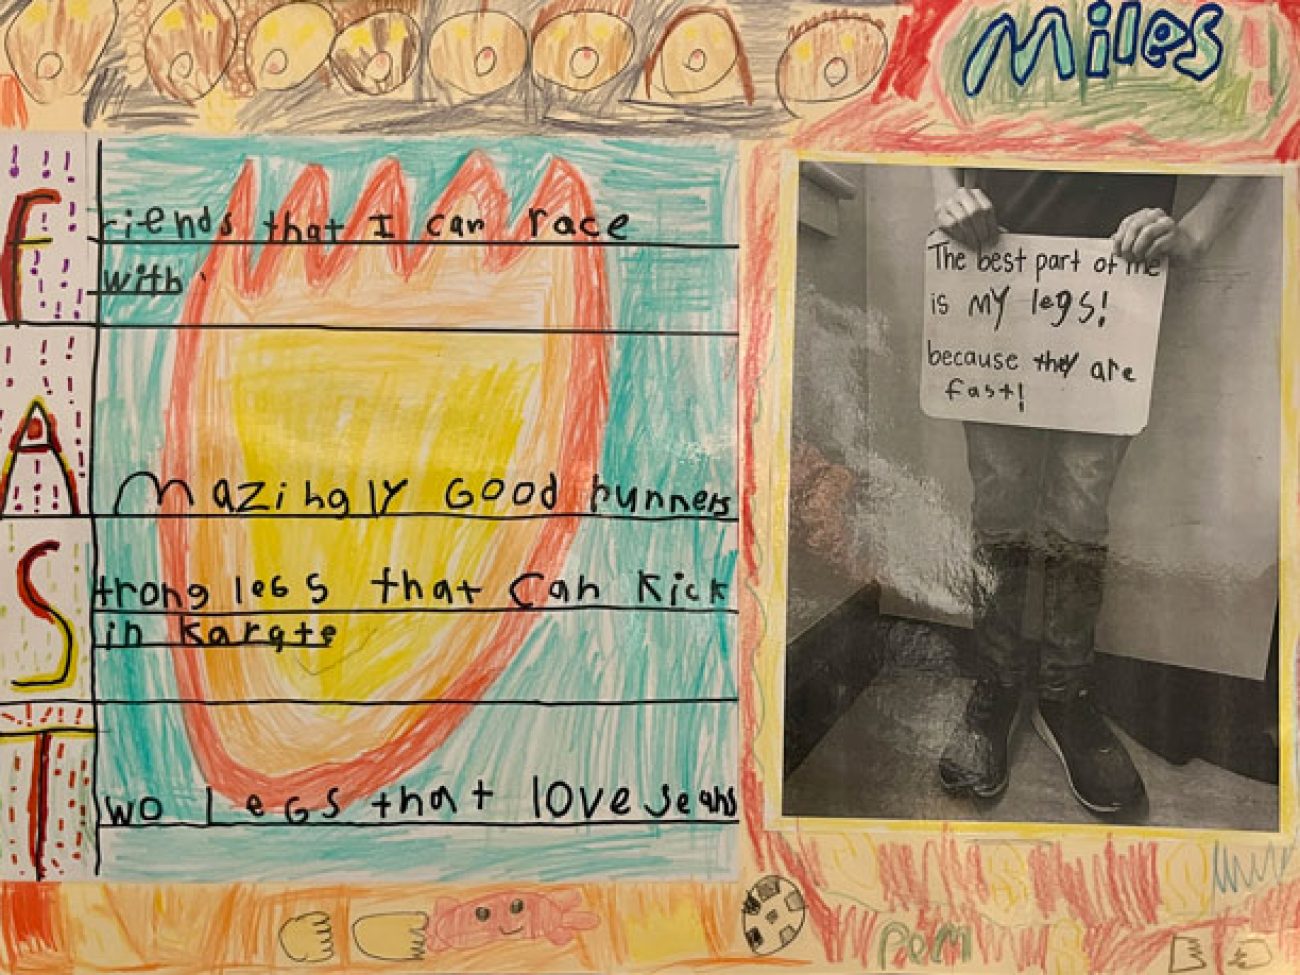 Miles
Friends that I can race
with
Amazingly Good runners
Strong legs that can kick
in karate
Two Legs that love jeans
The best part of me
is my legs!
because they are
fast!
Poem